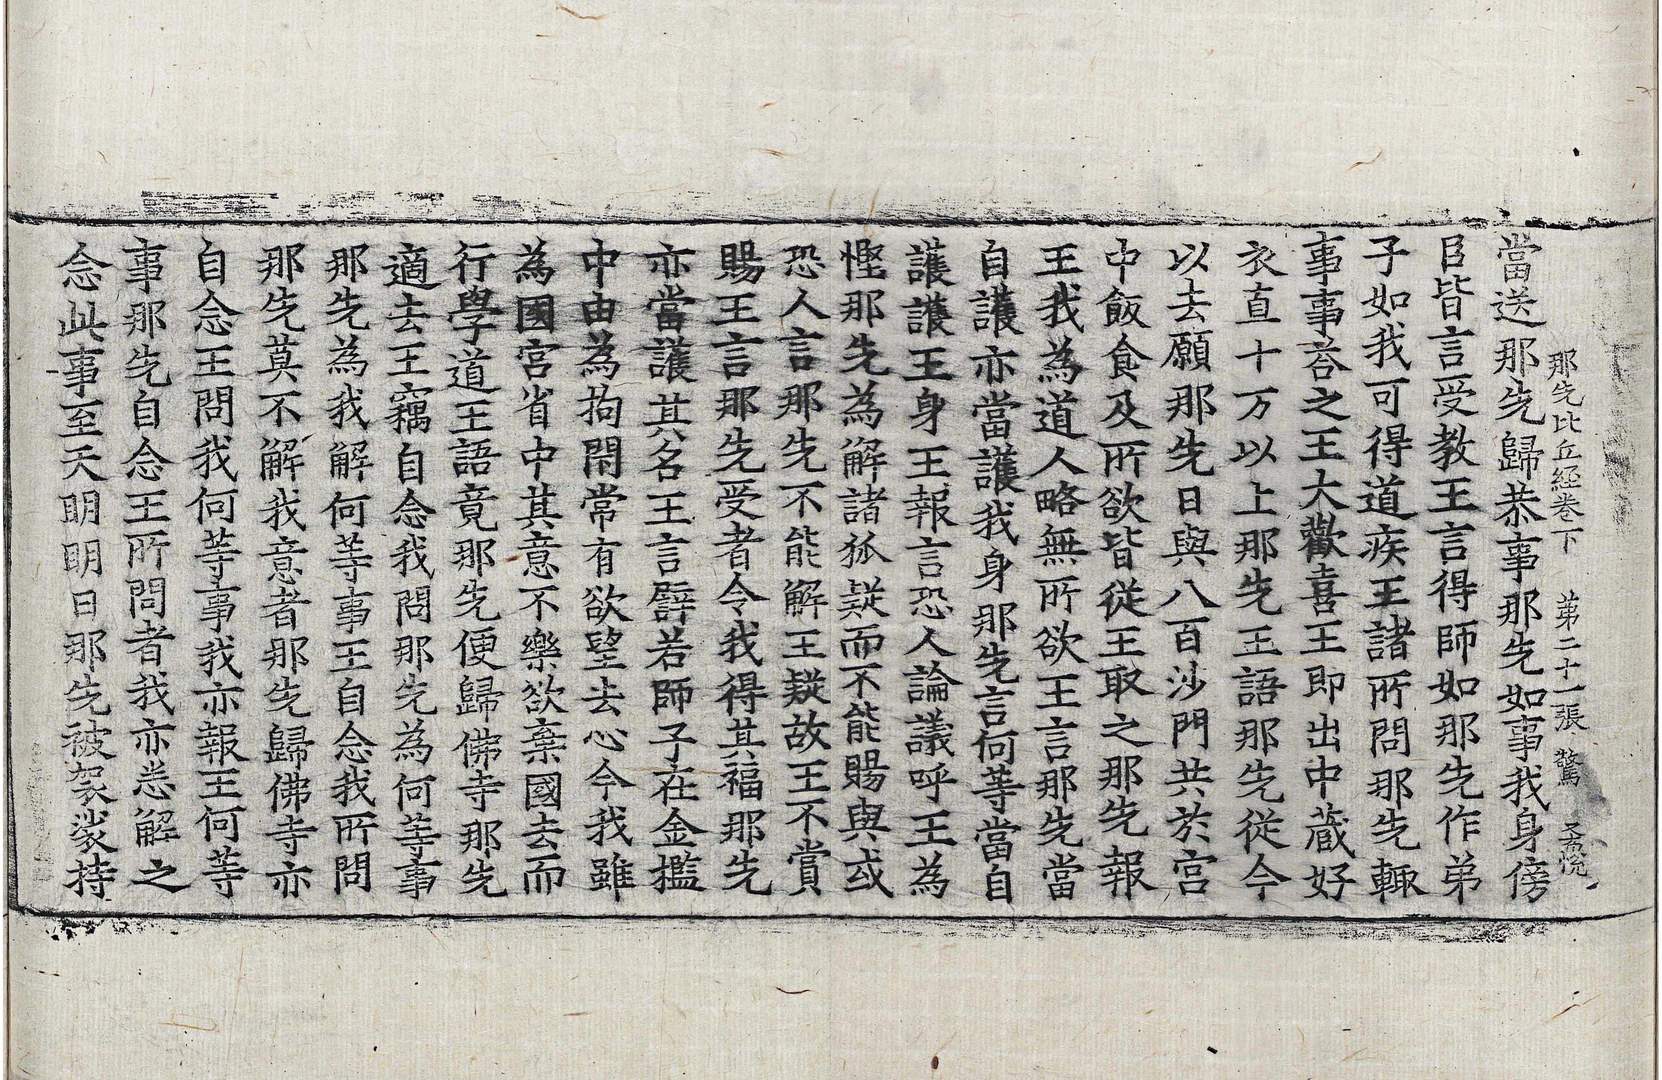 那先比丘経卷下　第二十一張　驚
當送那先歸恭事那先如事我身傍
臣皆言受教王言得師如那先作弟
子如我可得道疾王諸所問那先輙
事事荅之王大歡喜王即出中蔵好
衣直十万以上那先王語那先従今
以去願那先日與八百沙門共於宮
中飯食及所欲皆従王取之那先報
王我為道人略無所欲王言那先當
自護亦當護我身那先言何等當自
護護王身王報言恐人論議呼王為
慳那先為解諸狐疑而不能賜與或
恐人言那先不能解王疑故王不賞
賜王言那先受者令我得其福那先
亦當護其名王言譬若師子在金檻
中由為拘閉常有欲望去心今我雖
為國宮省中其意不樂欲棄國去而
行學道王語竟那先便歸佛寺那先
適去王竊自念我問那先為何等事
那先為我解何等事王自念我所問
那先莫不解我意者那先歸佛寺亦
自念王問我何等事我亦報王何等
事那先自念王所問者我亦悉解之
念此事至天明明日那先被袈裟持